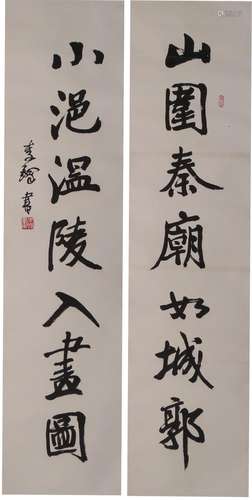 山圍秦廟如城郭
小浥溫陵入畫圖
李 書